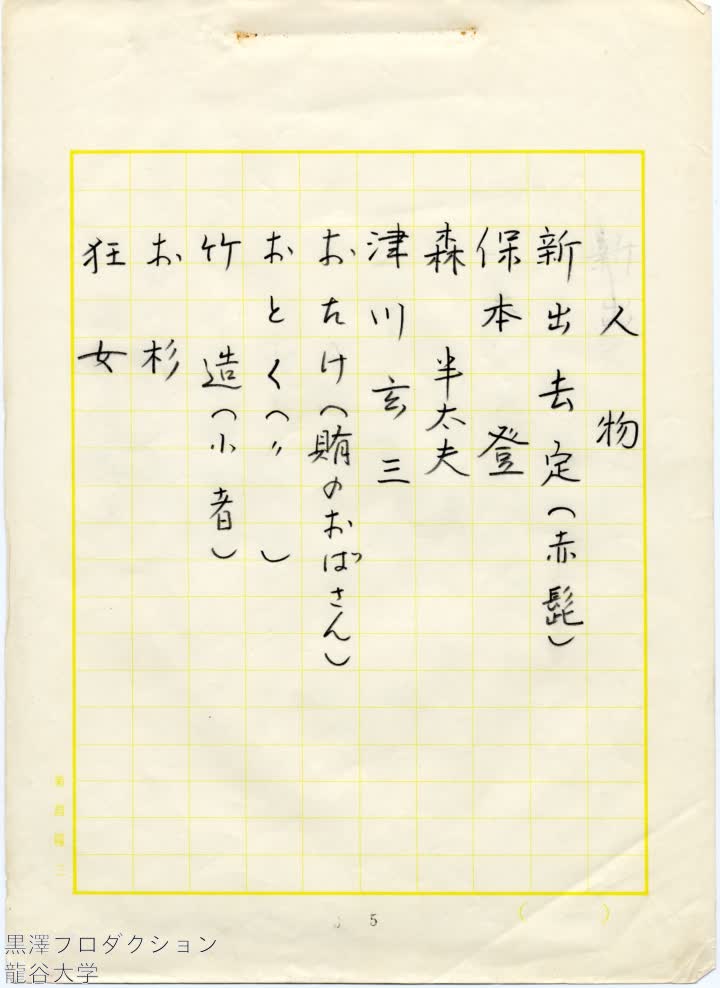 人物
新出去定(赤髭)
保本登
森半太夫
津川玄三
おたけ(賄のおばさん)
おとく(〃)
竹造(小者)
お杉
狂女
5
黒澤プロダクション
龍谷大学